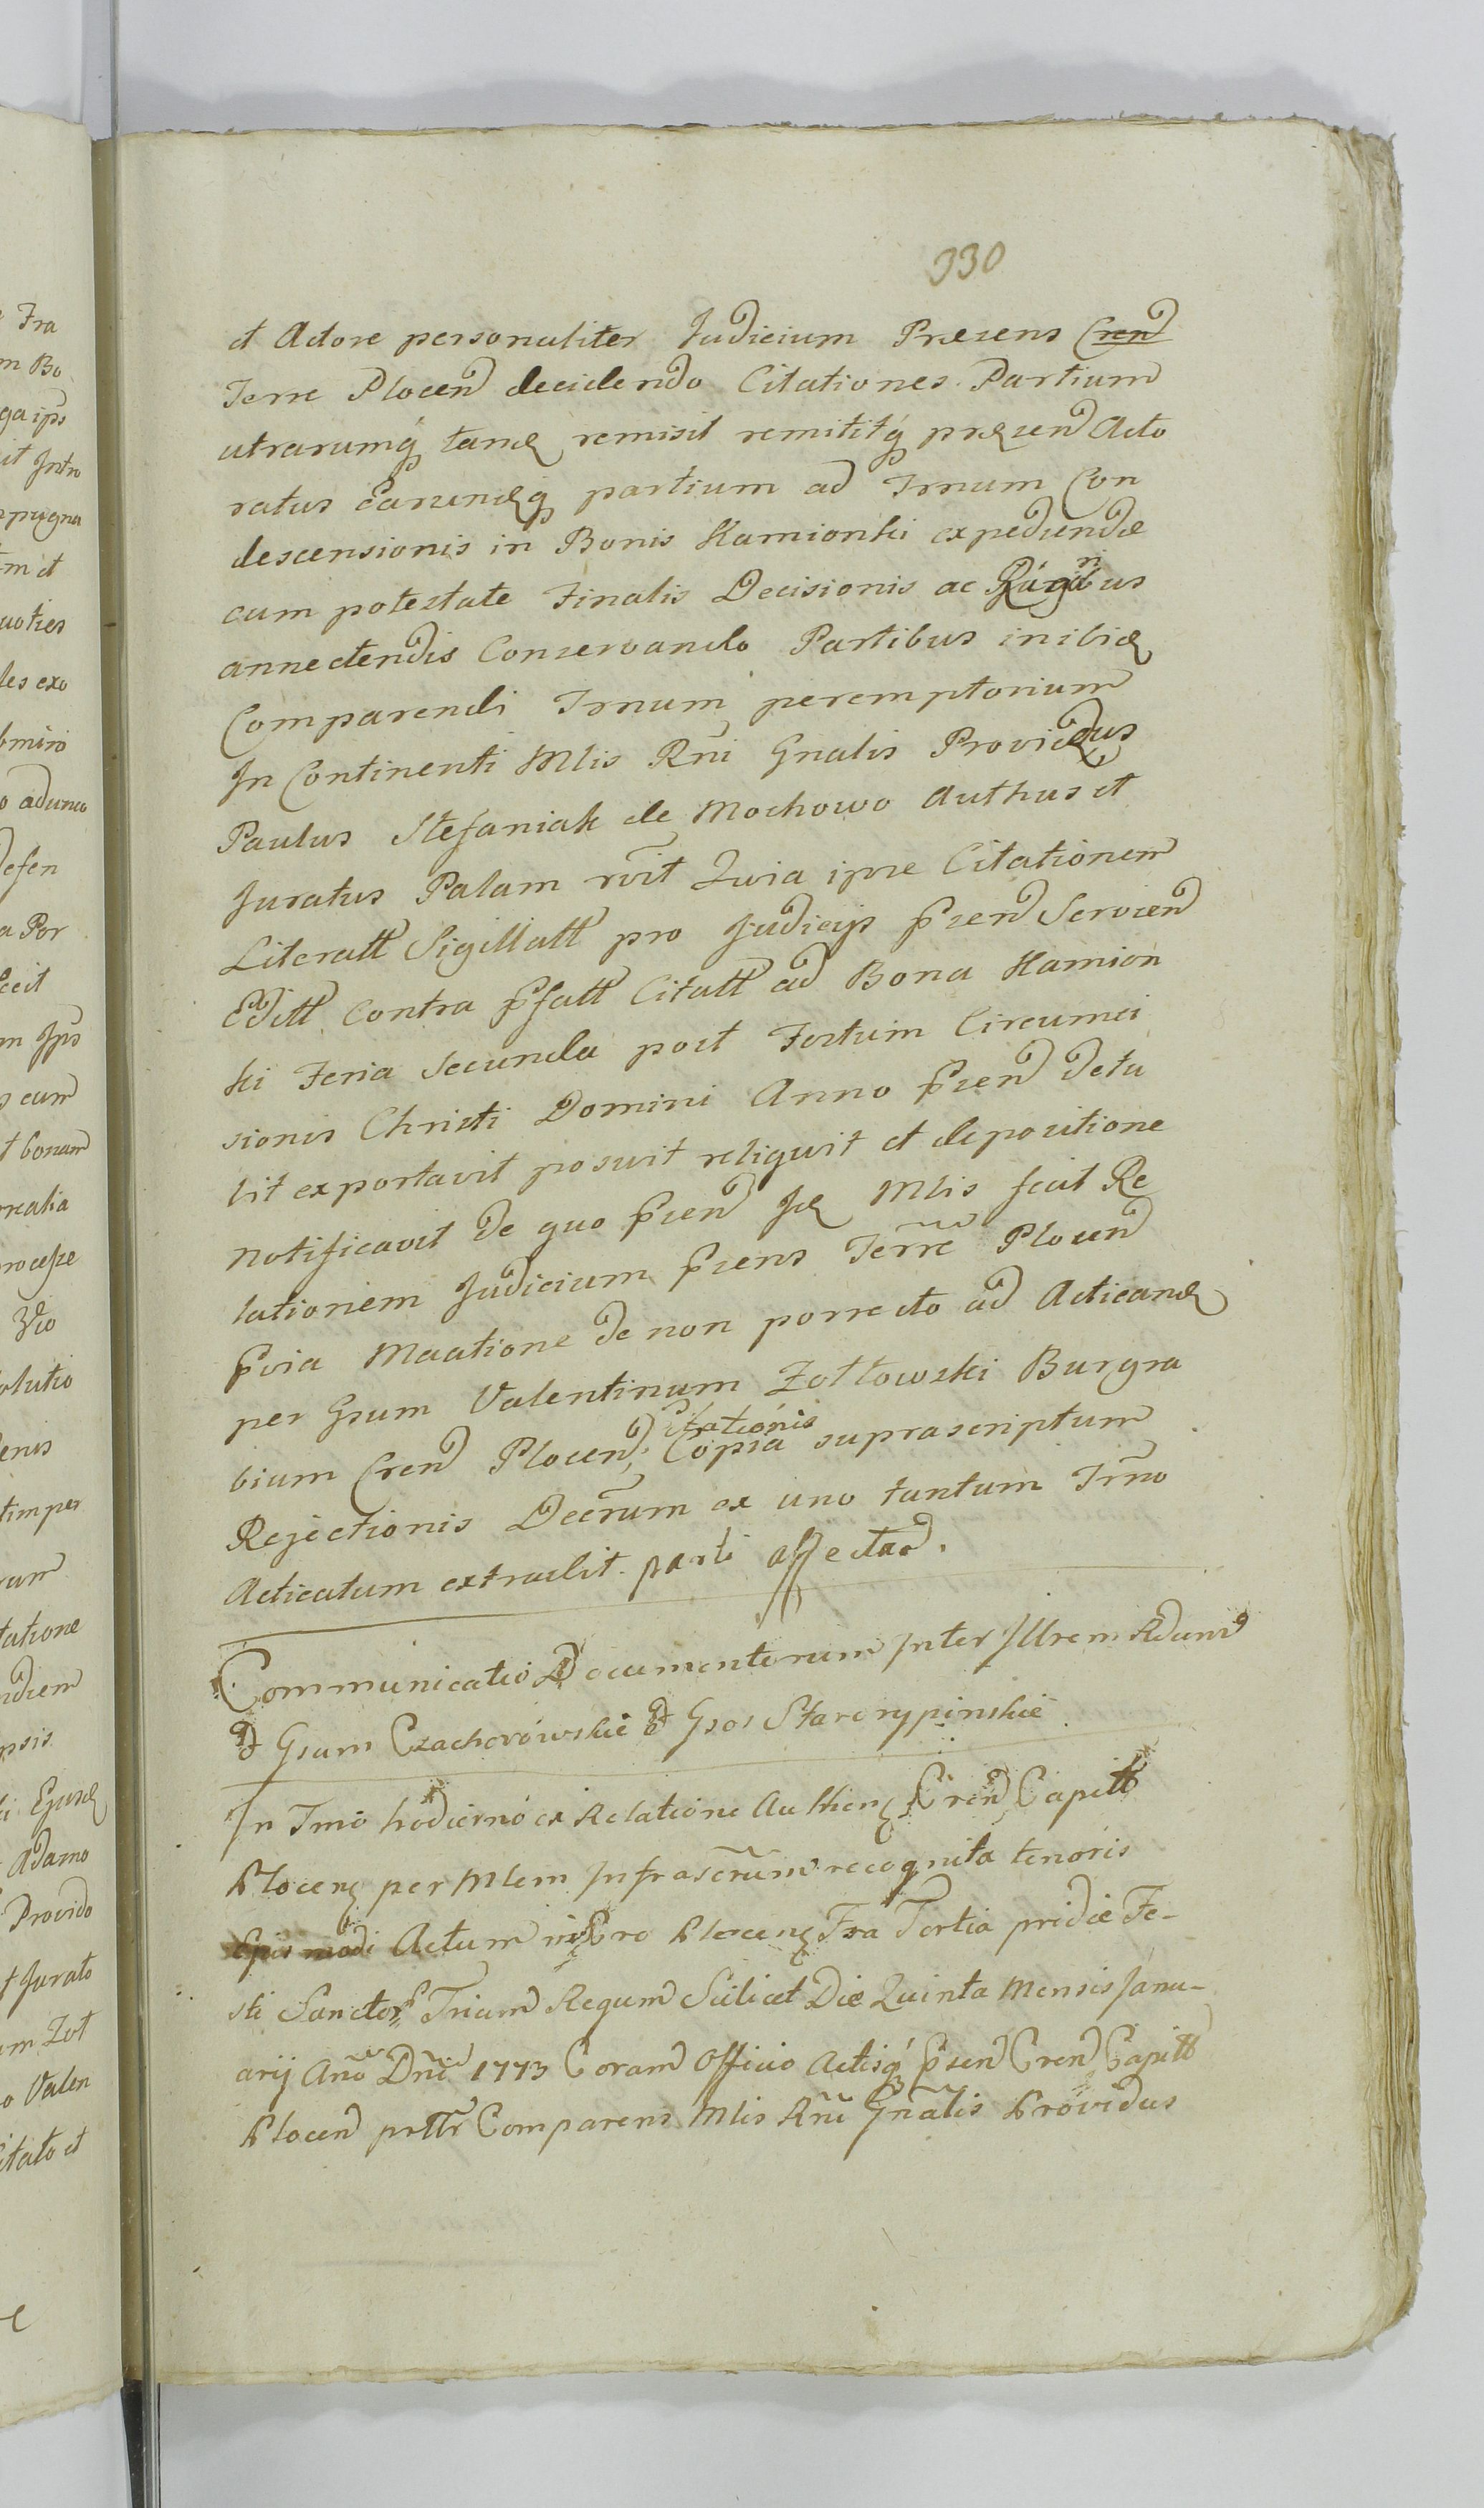 330
et Actore personaliter Judicium Præsens Cren
Terre Plocen decidendo Citationes Partium
utrarumq tamen remisit remititq præsen Acto
ratus earundemq partium ad Trnum Con
descensionis in Bonis Kamionki expediendæ
cum potestate Finalis Decisionis ac
annectendis Conservando Partibus inibid
Comparendi Trnum peremptorium
In Continenti Mlis Rni Gnalis Providus
Paulus Stefaniak de Mochowo Authus et
Juratus Palam rvit Quia ipse Citationem
Literatt Sigillatt pro Judicijs Pszen Servien
Editt contra pfatt Citatt ad Bona Kamion
ki Feria Secunda post Festum Circumci
sionis Christi Domini Anno Pszen Detu
lit exportavit posuit reliquit et depositione
notificavit De quo Pszen Je Mlis fecit Re
lationem Judicium Pszens Terre Plocen
Pvia Maatione De non porrecto ad Acticand
per Gsum Valentinum Zołtowski Burgra
bium Cren Plocen; Copia Citationis suprascriptum
Rejectionis Decrum ex uno tantum Trno
Acticatum extradit. parti affectan.
Communicatio Documentorum Inter Illrem Adum
et Gsum Czachorowskie et Gsos Starorypinskie
In Tmo hodierno ex Relatione Authen Cren Capitt
Plocen per Mlem Infrascrum recognita tenoris
Ejusmodi Actum in Cro Plocen Fra Tertia pridie Fe-
sti Sanctor Trium Regum Scilicet Die Quinta Mensis Janu-
arij Ano Dni 1773 Coram Officio Actisq Psen Cren Capitt
Plocen psttr Comparens Mlis Rni Gnalis Providus